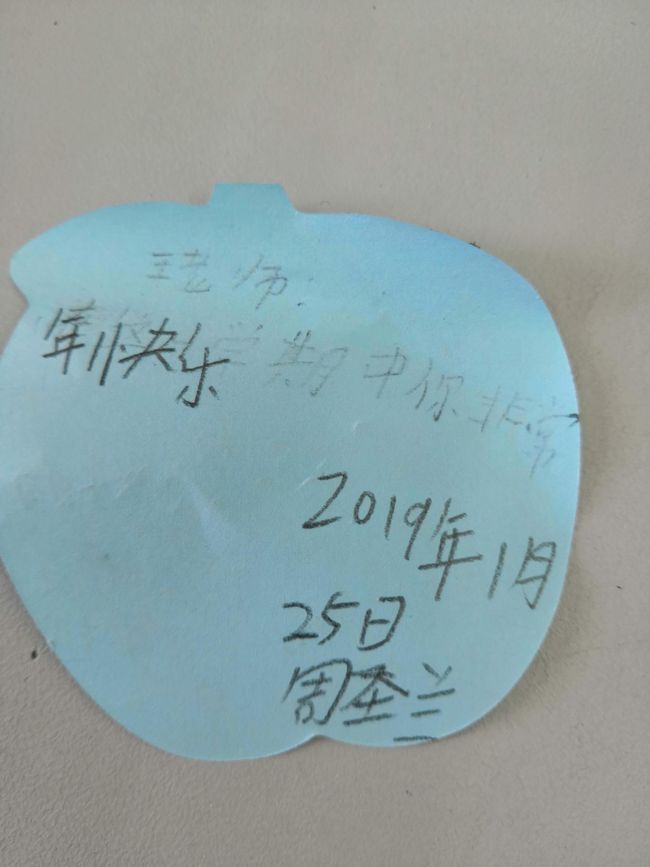 王老师:
快乐
学期中你非常
2019年1月
25日
周 兰